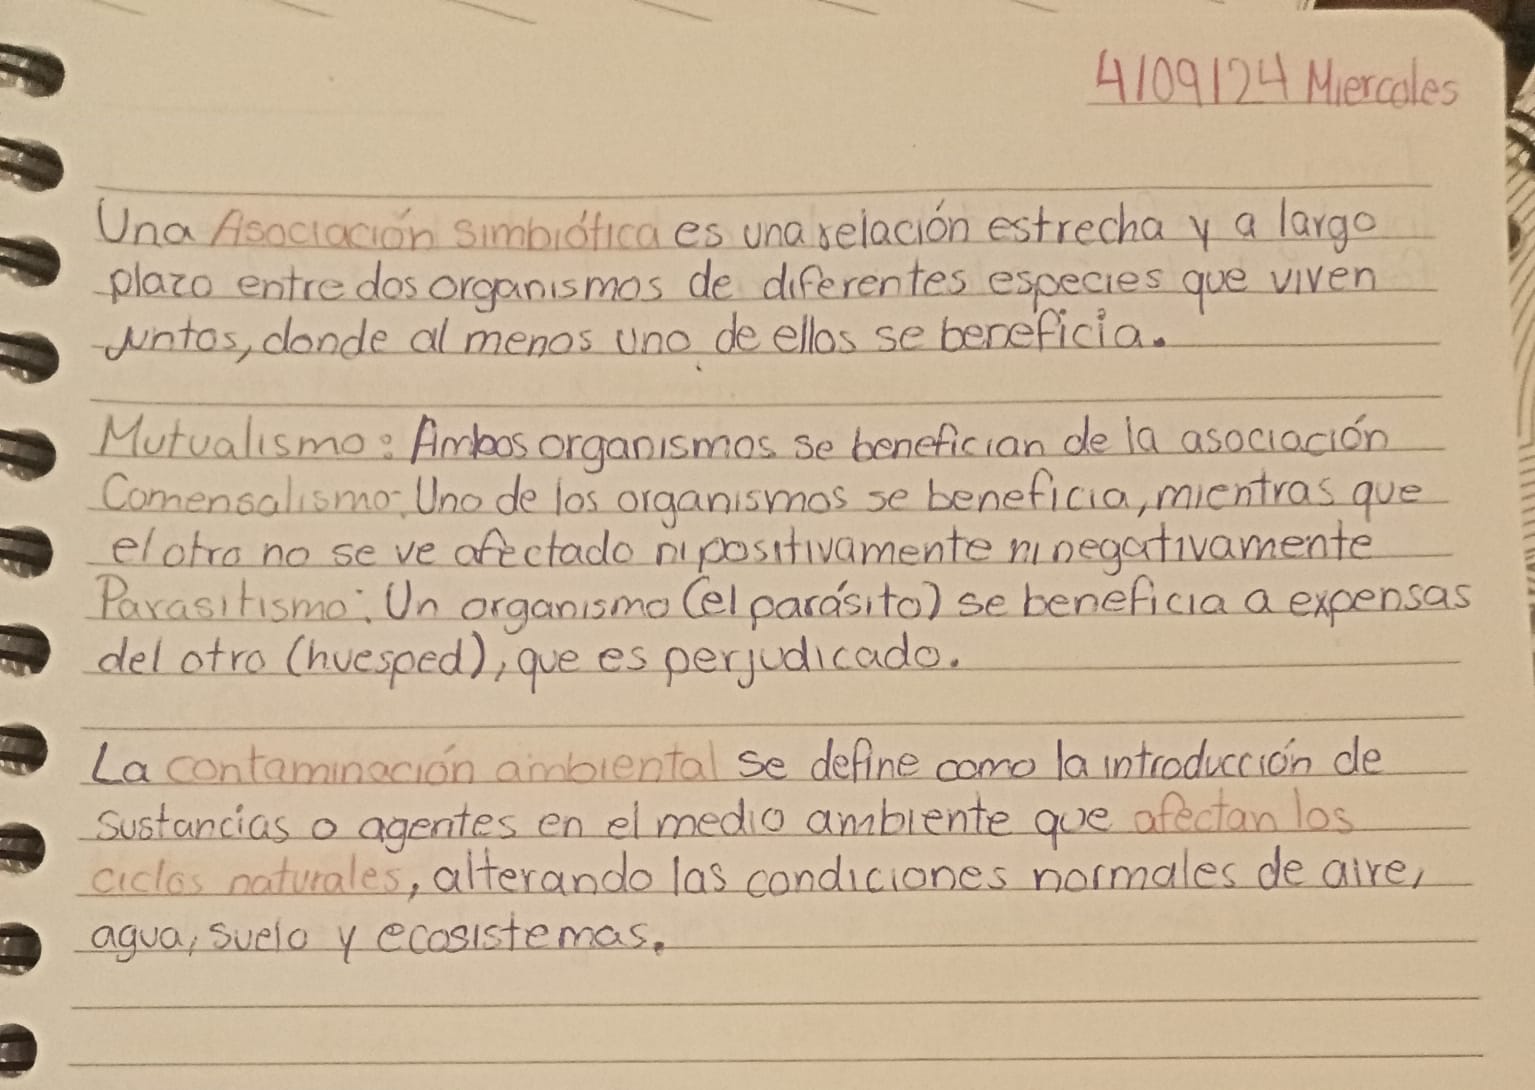 4/09/24 Miercoles
Una Asociación simbiótica es una relación estrecha y a largo
plazo entre dos organismos de diferentes especies que viven
juntos, donde al menos uno de ellos se beneficia.
Mutualismo: Ambos organismos se benefician de la asociación
Comensalismo: Uno de los organismos se beneficia, mientras que
el otro no se ve afectado ni positivamente ni negativamente
Parasitismo: Un organismo (el parásito) se beneficia a expensas
del otro (huesped), que es perjudicado.
La contaminación ambiental se define como la introducción de
sustancias o agentes en el medio ambiente que afectan los
ciclos naturales, alterando las condiciones normales de aire,
agua, suelo y ecosistemas.